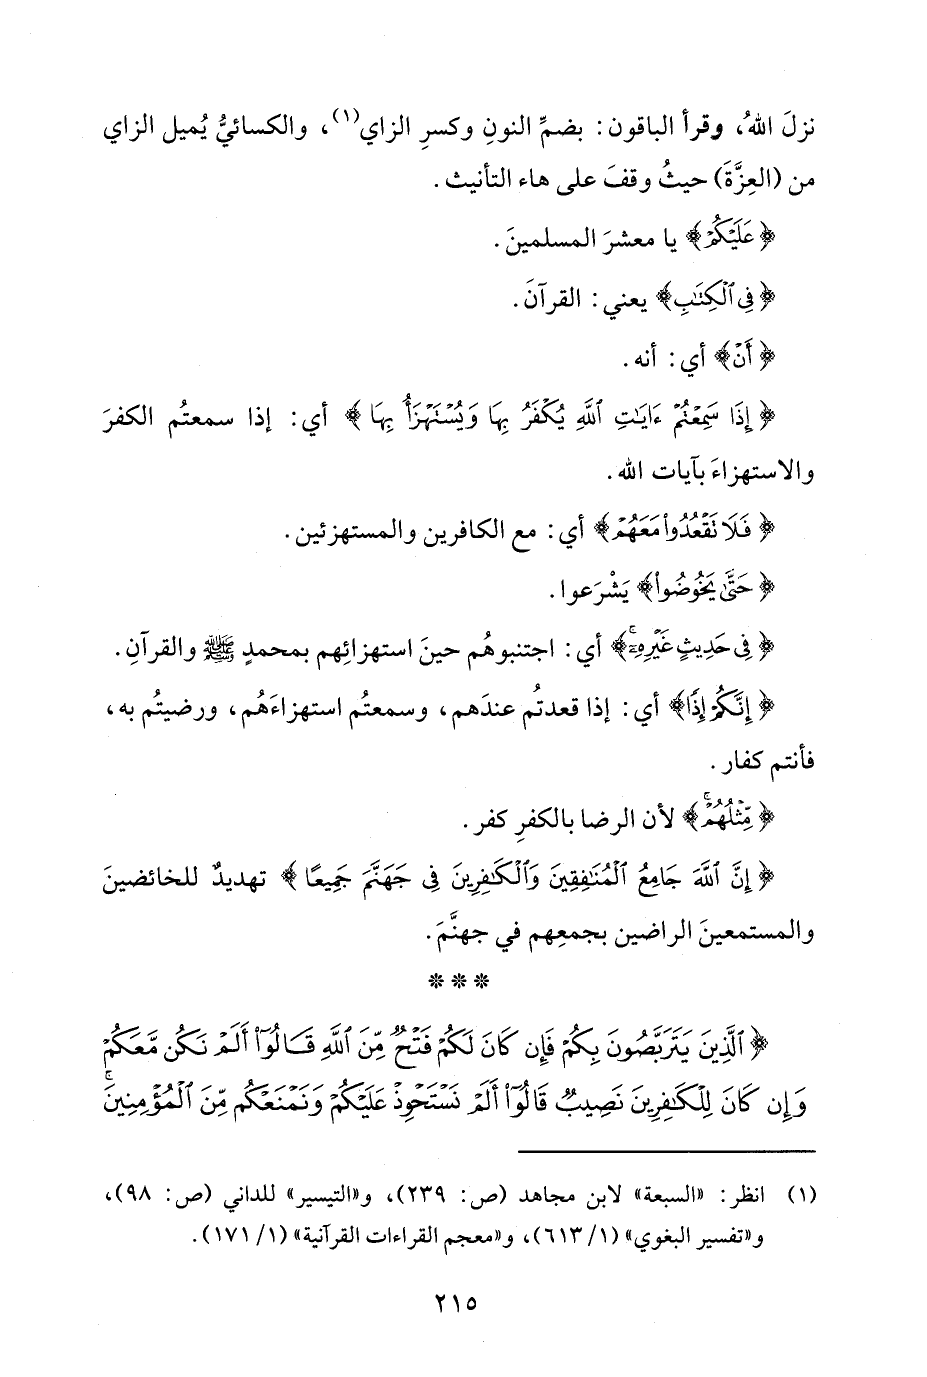 نزلَ اللهُ، وقرأ الباقون: بضمِّ النونِ وكسرِ الزاي(١)، والكسائيُّ يُميل الزاي
من (العِزَّةَ) حيثُ وقفَ على هاء التأنيث.
﴿عَلَيْكُمْ﴾ يا معشرَ المسلمينَ.
﴿فِى ٱلْكِتَٰبِ﴾ يعني: القرآنَ.
﴿أَنْ﴾ أي: أنه.
﴿إِذَا سَمِعْتُمْ ءَايَٰتِ ٱللَّهِ يُكْفَرُ بِهَا وَيُسْتَهْزَأُ بِهَا﴾ أي: إذا سمعتُم الكفرَ
والاستهزاءَ بآيات الله.
﴿فَلَا تَقْعُدُوا۟ مَعَهُمْ﴾ أي: مع الكافرين والمستهزئين.
﴿حَتَّىٰ يَخُوضُوا۟﴾ يَشْرَعوا.
﴿فِى حَدِيثٍ غَيْرِهِۦٓ ۚ﴾ أي: اجتنبوهُم حينَ استهزائِهم بمحمدٍ ﷺ والقرآنِ.
﴿إِنَّكُمْ إِذًا﴾ أي: إذا قعدتُم عندَهم، وسمعتُم استهزاءَهُم، ورضيتُم به،
فأنتم كفار.
﴿مِّثْلُهُمْ ۗ﴾ لأن الرضا بالكفرِ كفر.
﴿إِنَّ ٱللَّهَ جَامِعُ ٱلْمُنَٰفِقِينَ وَٱلْكَٰفِرِينَ فِى جَهَنَّمَ جَمِيعًا﴾ تهديدٌ للخائضينَ
والمستمعينَ الراضين بجمعِهم في جهنَّمَ.
* * *
﴿ٱلَّذِينَ يَتَرَبَّصُونَ بِكُمْ فَإِن كَانَ لَكُمْ فَتْحٌ مِّنَ ٱللَّهِ قَالُوٓا۟ أَلَمْ نَكُن مَّعَكُمْ
وَإِن كَانَ لِلْكَٰفِرِينَ نَصِيبٌ قَالُوٓا۟ أَلَمْ نَسْتَحْوِذْ عَلَيْكُمْ وَنَمْنَعْكُم مِّنَ ٱلْمُؤْمِنِينَ ۚ
(١) انظر: «السبعة» لابن مجاهد (ص: ٢٣٩)، و«التيسير» للداني (ص: ٩٨)،
و«تفسير البغوي» (١/ ٦١٣)، و«معجم القراءات القرآنية» (١/ ١٧١).
٢١٥